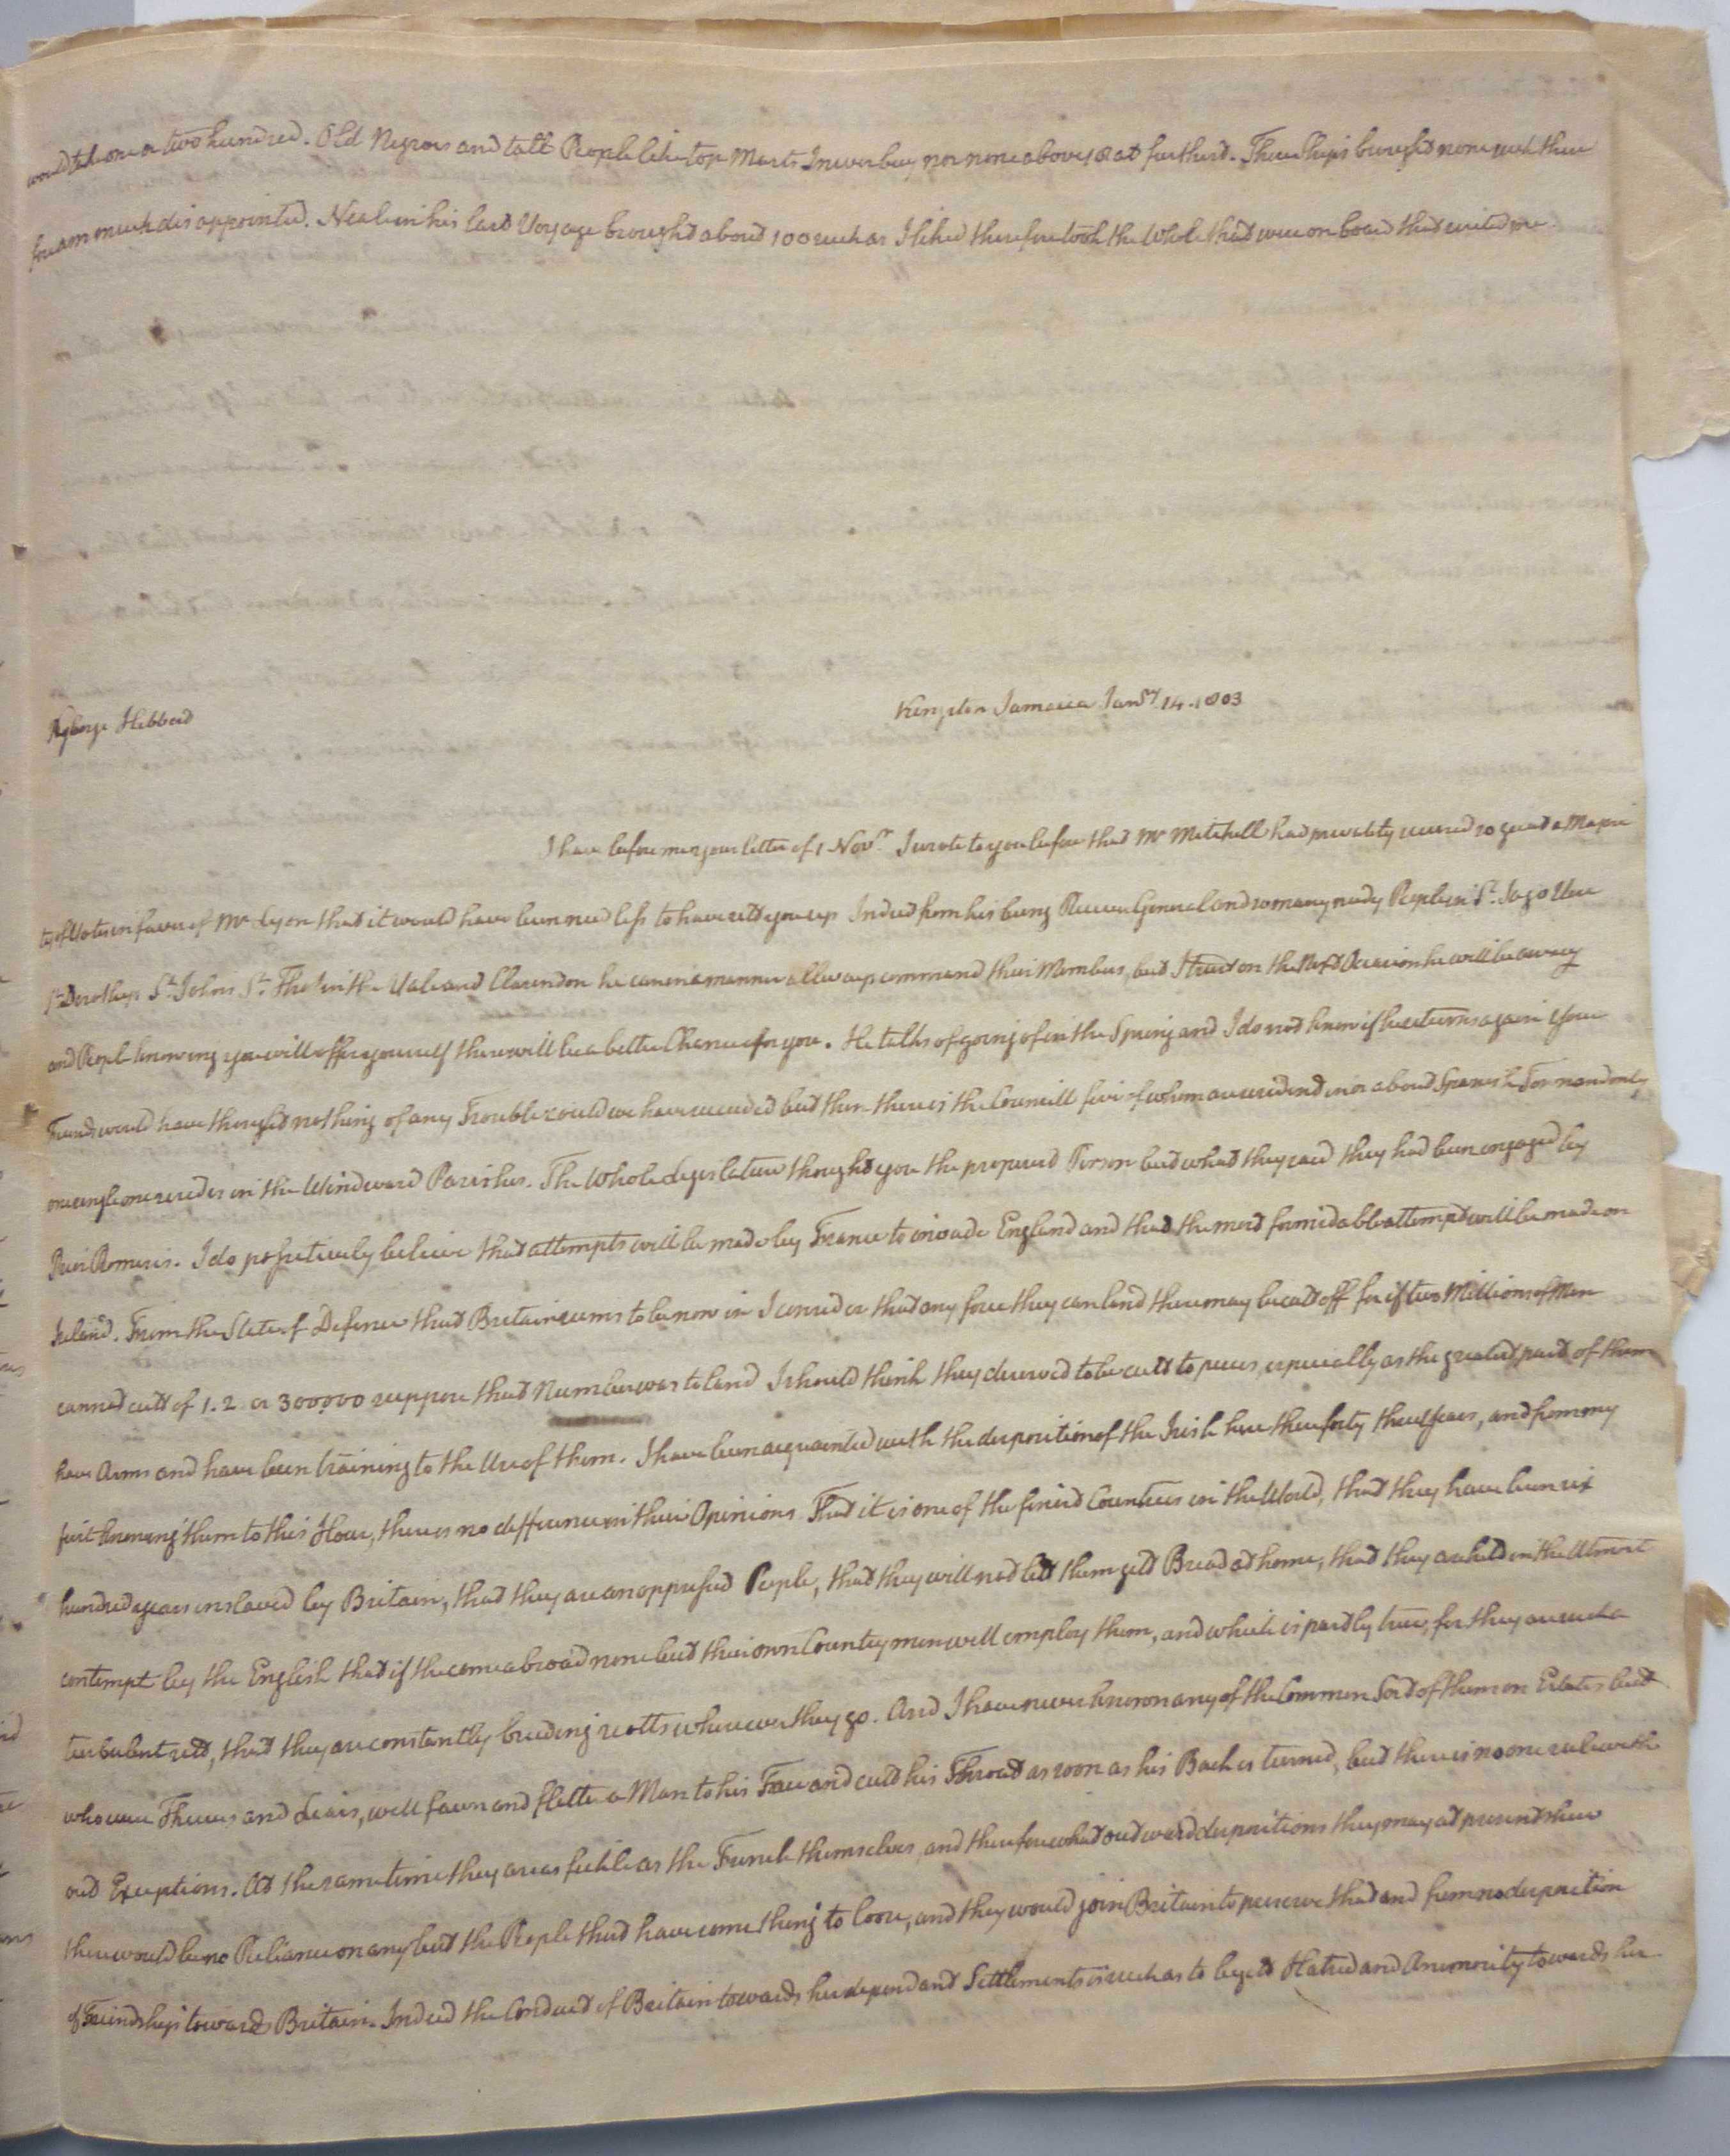 would take one or two hundred. Old Negroes and tall People like top Masts I never buy nor none above 18 at furthest. These Ships brought none such there
fore am much disappointed. Neale in his last Voyage brought about 100 such as I liked therefore took the Whole that were on board that suited me
George Hibbert
Kingston Jamaica Janry. 14. 1803
I have before me your letter of 1 Novr. I wrote to you before that Mr Mitchell had privately secured so great a Majori
ty of Votes in favor of Mr Lyon that it would have been need less to have sett you up Indeed from his being Receiver General and so many needy People in St. Jago Vere
St. Dorothys St. Johns St. Tho in the Vale and Clarendon he can in a manner allways command their Members, but I trust on the Next Occasion he will be away
and People knowing you will offer yourself there will be a better Chance for you. He talks of going of in the Spring and I do not know if he returns again Your
Friends would have thought nothing of any Trouble could we have succeeded but then there is the Councill five of whom are resident in or about Spanish Town and only
one single one resides in the Windward Parishes. The Whole Legislature thought you the properest Person but what they said they had been engaged by
Prior Promises. I do possitively believe that attempts will be made by France to invade England and that the most formidable attempt will be made on
Ireland. From the State of Defence that Britain seems to be now in I consider that any force they can land there may be cutt off for if two Millions of Men
cannot cutt of 1. 2 or 300,000 suppose that Number was to land I should think they deserved to be cutt to pieces, especially as the greatest part of them
have Arms and have been training to the Use of them. I have been acquainted with the disposition of the Irish here these forty three Years, and from my
first knowing them to this Hour, there is no difference in their Opinions That it is one of the finest Countries in the World, that they have been six
hundred years enslaved by Britain, that they are an oppressed People, that they will not lett them gett Bread at home, that they are held in the Utmost
contempt by the English that if the come abroad none but their own Country men will employ them, and which is partly true, for they are such a
turbulent sett, that they are constantly breeding riotts wherever they go. And I have never known any of the Common Sort of them on Estates but
who were Thieves and Liars, will fawn and flatter a Man to his Face and cutt his Throat as soon as his Back is turned, but there is no one rule with
out Exceptions. At the same time they are as fickle as the French themselves and therefore what outward dispositions they may at present shew
there would be no Reliance on any but the People that have some thing to loose, and they would join Britain to preserve that and from no disposition
of Friendship towards Britain. Indeed the Conduct of Britain towards her dependant Settlements is such as to begett Hatred and Animosity towards her